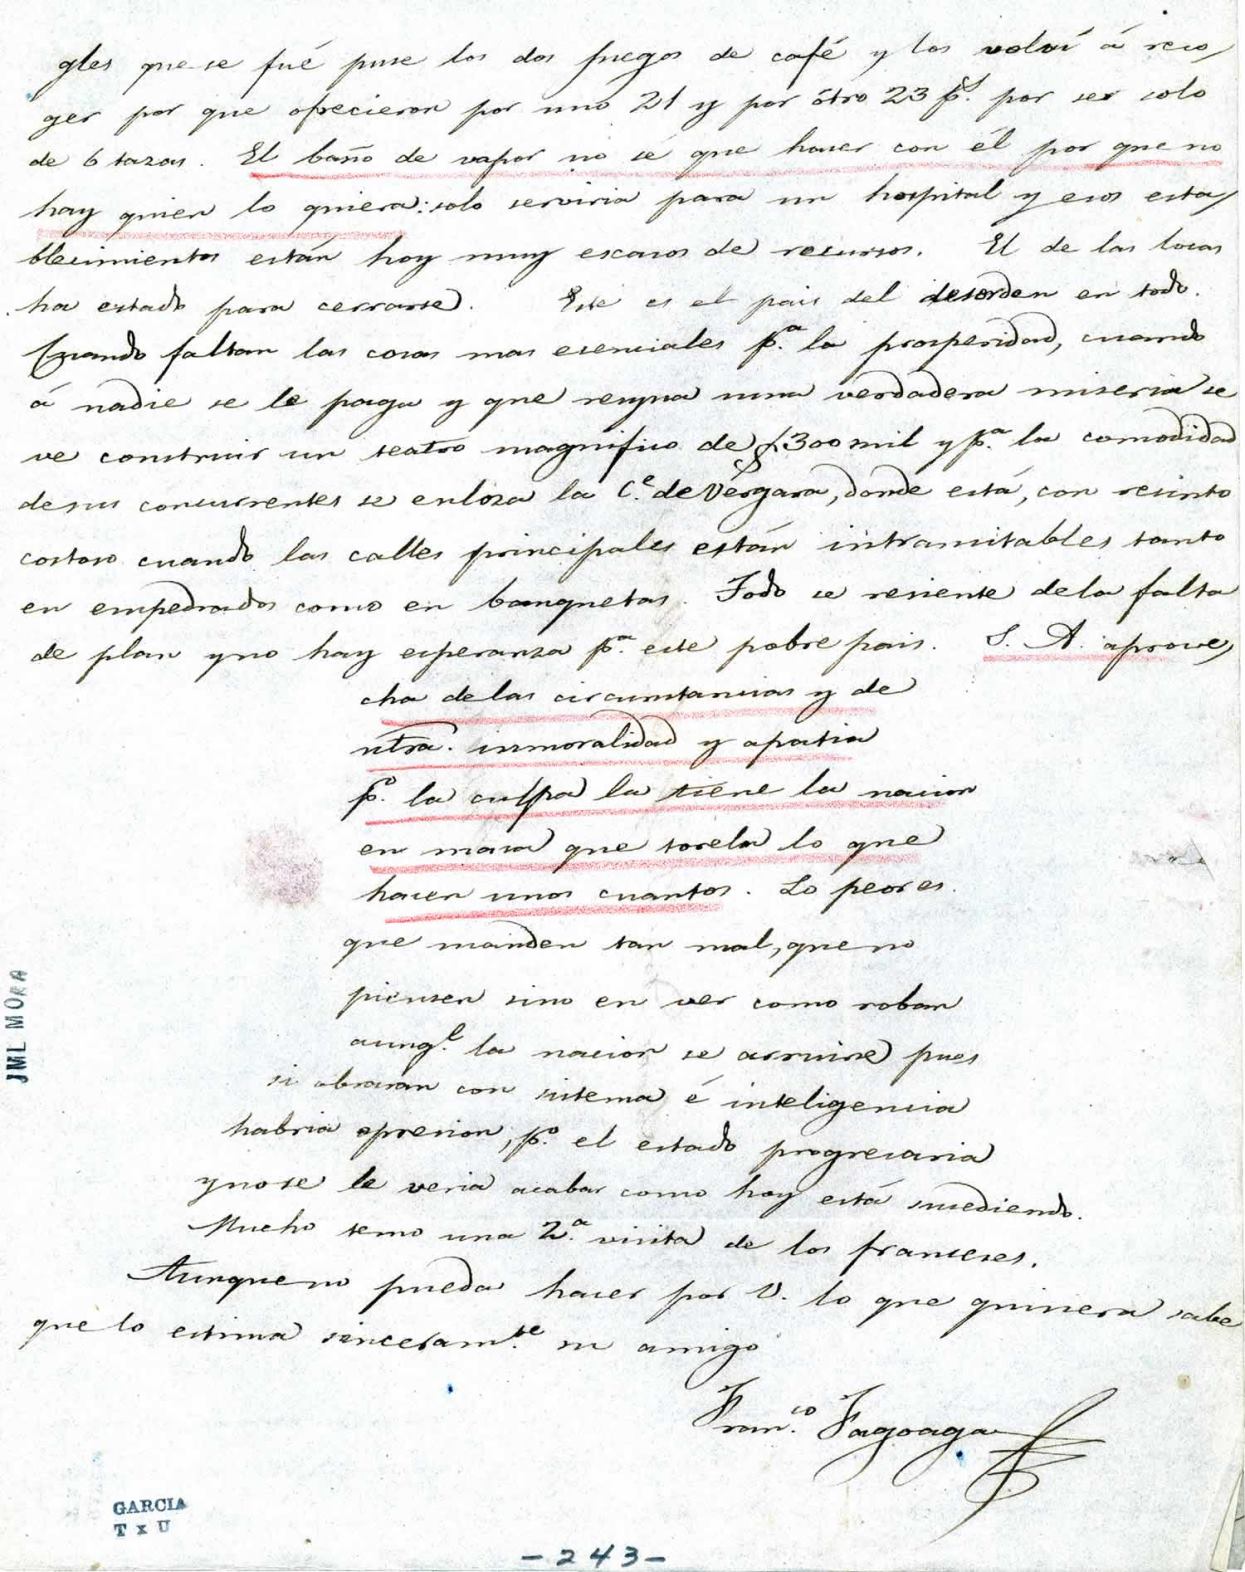 gles que se fué puse los dos juegos de café y los volví á reco
ger por que ofrecieron por uno 21 y por ótro 23 p.s por ser solo
de 6 tazas. El baño de vapor no sé que hacer con él por que no
hay quien lo quiera: solo serviria para un hospital y esos esta
blecimientos están hoy muy escasos de recursos. El de las locas
ha estado para cerrarse. Este es el pais del desorden en todo.
Cuando faltan las cosas mas esenciales p.a la prosperidad, cuando
á nadie se le paga y que reyna una verdadera miseria se
ve construir un teatro magnifico de $300 mil y p.a la comodidad
de sus concurrentes se enloza la C.e de Vergara, donde está, con recinto
costoso cuando las calles principales están intransitables tanto
en empedrados como en banquetas. Todo se resiente de la falta
de plan y no hay esperanza p.a este pobre pais. S. A. aprove
cha de las circunstancias y de
ntra. inmoralidad y apatia
p.o la culpa la tiene la nacion
en masa que torela lo que
hacen unos cuantos. Lo peor es
que manden tan mal, que no
piensen sino en ver como roban
aunq.e la nacion se arruine pues
si obraran con sistema é inteligencia
habria opresion, p.o el estado progresaria
y no se le veria acabar como hoy está sucediendo.
Mucho temo una 2.a visita de los franceses.
Aunque no pueda hacer por V. lo que quisiera sabe
que lo estima sinceram.te su amigo
Fran.co Fagoaga
JML MORA
GARCIA
T x U
-243-